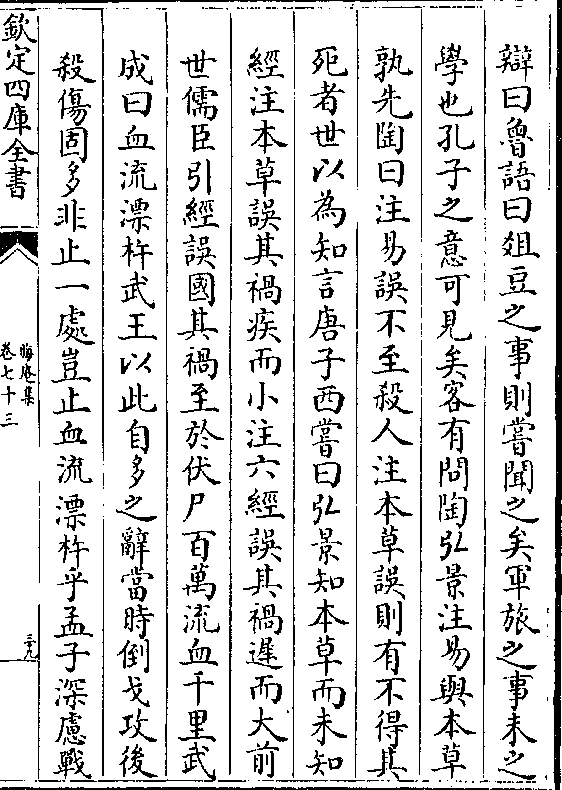 辯曰魯語曰俎豆之事則嘗聞之矣軍旅之事未之
學也孔子之意可見矣客有問陶弘景注易與本草
孰先陶曰注易誤不至殺人注本草誤則有不得其
死者世以為知言唐子西嘗曰弘景知本草而未知
經注本草誤其禍疾而小注六經誤其禍遲而大前
世儒臣引經誤國其禍至於伏尸百萬流血千里武
成曰血流漂杵武王以此自多之辭當時倒戈攻後
殺傷固多非止一處豈止血流漂杵乎孟子深慮戰
欽定四庫全書
晦庵集
卷七十三
三九